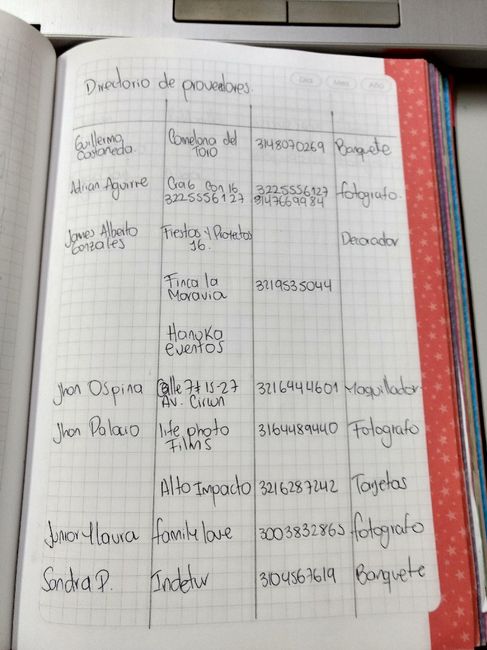 Día Mes Año
Directorio de proveedores.
Guillermo Castañeda. Comelona del Toro 3148070269 Banquete
Adrian Aguirre Cra6 Con 16 3225556127 3225556127 3147669984 fotografo.
James Alberto Gonzales Fiestas y Protectos 16. Decorador
Finca la Moravia 3219535044
Hanuka eventos
Jhon Ospina Calle 7# 15-27 Av. 3216444601 Maquillador
Jhon Palacio life photo Films 3164489440 Fotografo
Alto Impacto 3216287242 Tarjetas
Junior y laura family love 3003832865 fotografo
Sandra P. Indetur 3104567619 Banquete